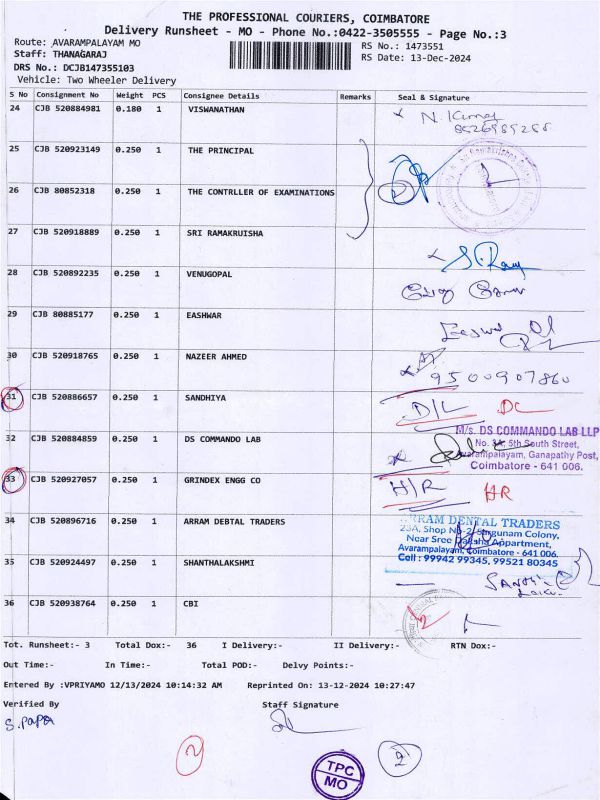 THE PROFESSIONAL COURIERS, COIMBATORE
Delivery Runsheet - MO - Phone No.:0422-3505555 - Page No.:3
Route: AVARAMPALAYAM MO
RS No.: 1473551
Staff: THANAGARAJ
RS Date: 13-Dec-2024
DRS No.: DCJB147355103
Vehicle: Two Wheeler Delivery
S No Consignment No Weight PCS Consignee Details Remarks Seal & Signature
24 CJB 520884981 0.180 1 VISWANATHAN
25 CJB 520923149 0.250 1 THE PRINCIPAL
26 CJB 80852318 0.250 1 THE CONTRLLER OF EXAMINATIONS
27 CJB 520918889 0.250 1 SRI RAMAKRUISHA
28 CJB 520892235 0.250 1 VENUGOPAL
29 CJB 80885177 0.250 1 EASHWAR
30 CJB 520918765 0.250 1 NAZEER AHMED
9500907860
31 CJB 520886657 0.250 1 SANDHIYA
D/L DL
32 CJB 520884859 0.250 1 DS COMMANDO LAB
M/s. DS COMMANDO LAB LLP
No. 3A, 5th South Street,
Avarampalayam, Ganapathy Post,
Coimbatore - 641 006.
33 CJB 520927057 0.250 1 GRINDEX ENGG CO
H/R HR
34 CJB 520896716 0.250 1 ARRAM DEBTAL TRADERS
ARRAM DENTAL TRADERS
23A, Shop No-2, Sargunam Colony,
Near Sree Appartment,
Avarampalayam, Coimbatore - 641 006.
Cell : 99942 99345, 99521 80345
35 CJB 520924497 0.250 1 SHANTHALAKSHMI
36 CJB 520938764 0.250 1 CBI
Tot. Runsheet:- 3 Total Dox:- 36 I Delivery:- II Delivery:- RTN Dox:-
Out Time:- In Time:- Total POD:- Delvy Points:-
Entered By :VPRIYAMO 12/13/2024 10:14:32 AM Reprinted On: 13-12-2024 10:27:47
Verified By Staff Signature
S. PAPA
2
2
TPC
MO